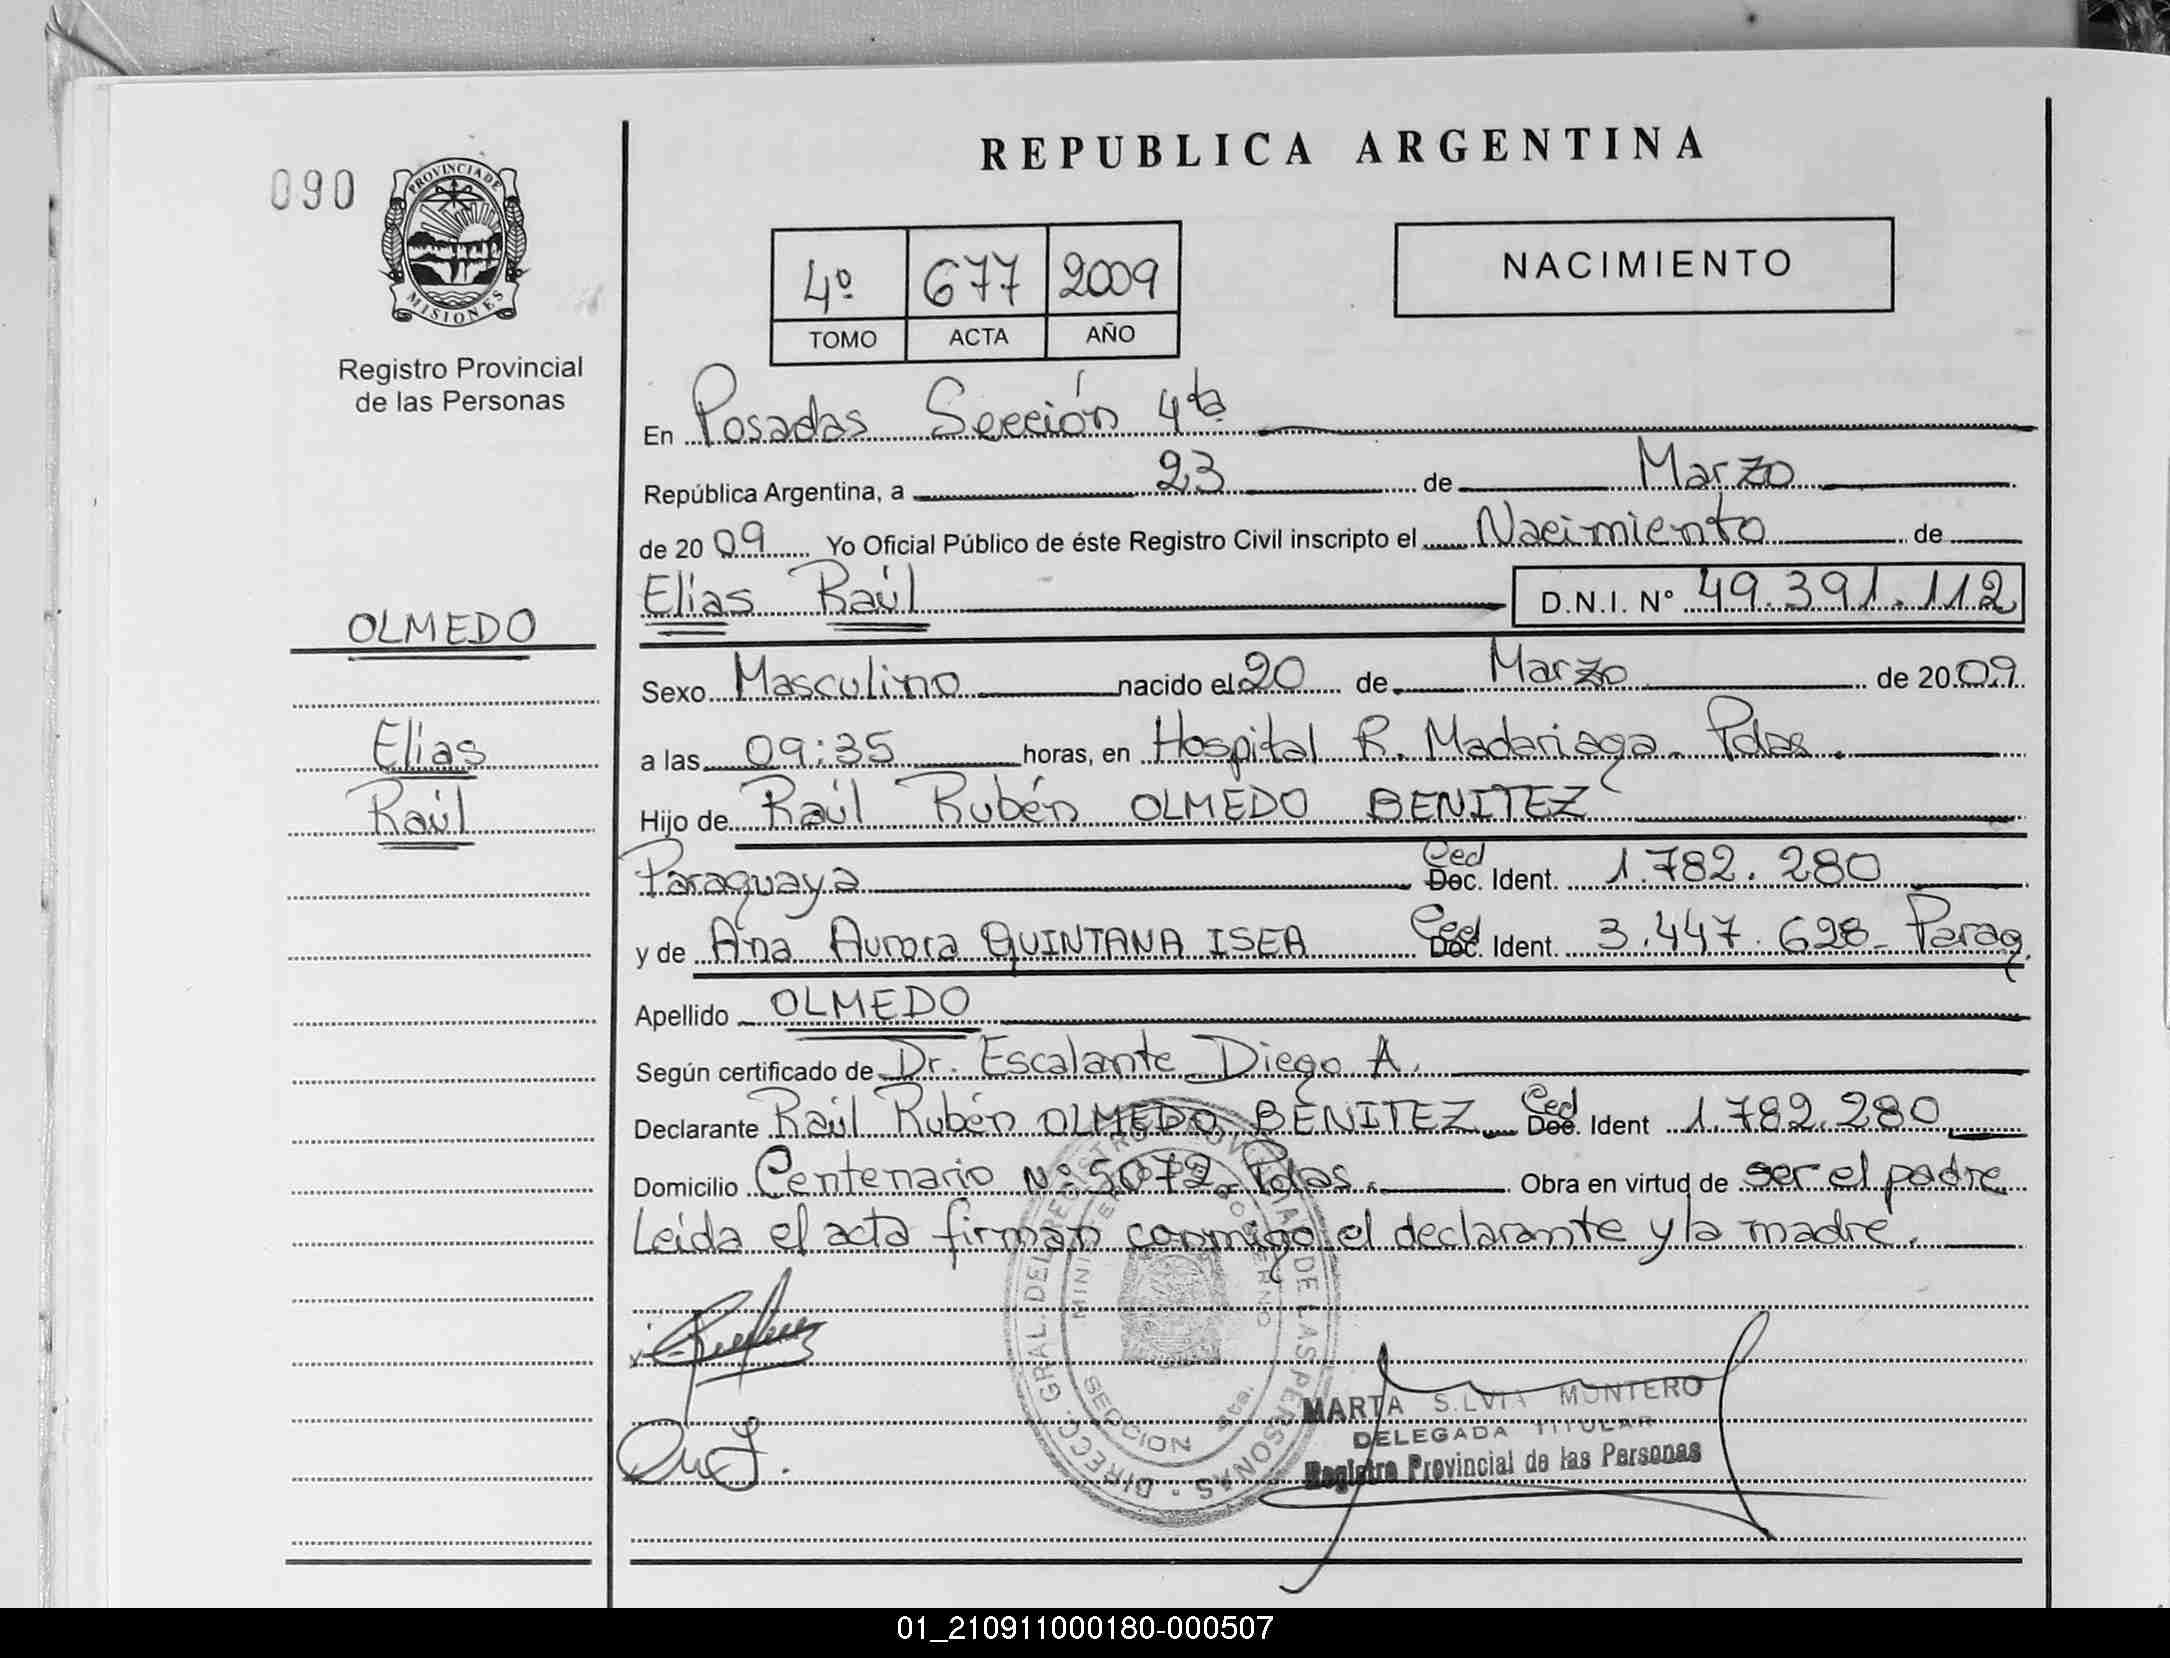 090
PROVINCIA DE
MISIONES
Registro Provincial
de las Personas
OLMEDO
Elias
Raúl
REPUBLICA ARGENTINA
4º 677 2009
TOMO ACTA AÑO
NACIMIENTO
En Posadas Sección 4ta
República Argentina, a 23 de Marzo
de 20 09 Yo Oficial Público de éste Registro Civil inscripto el Nacimiento de
Elias Raúl D.N.I. Nº 49.391.112
Sexo Masculino nacido el 20 de Marzo de 20 09
a las 09:35 horas, en Hospital R. Madariaga - Pdas.
Hijo de Raúl Rubén OLMEDO BENITEZ
Paraguaya Ced Doc. Ident. 1.782.280
y de Ana Aurora QUINTANA ISEA Ced Doc. Ident. 3.447.628 - Parag.
Apellido OLMEDO
Según certificado de Dr. Escalante Diego A.
Declarante Raúl Rubén OLMEDO BENITEZ Ced Doc. Ident 1.782.280
Domicilio Centenario Nº 5072 - Pdas. Obra en virtud de ser el padre
Leída el acta firman conmigo el declarante y la madre.
DIRECC. GRAL. DEL REGISTRO PROVINCIAL DE LAS PERSONAS
SECCION
MARTA SILVIA MONTERO
DELEGADA TITULAR
Registro Provincial de las Personas
01_210911000180-000507